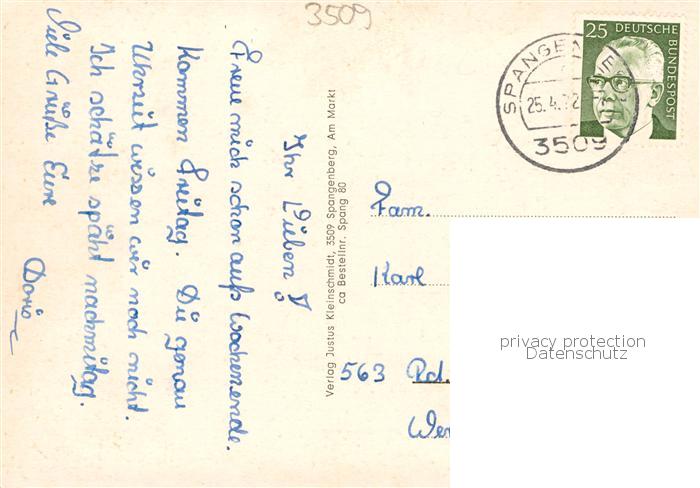 3509
Ihr Lieben!
Freue mich schon aufs Wochenende.
Kommen Freitag. Die genau
Uhrzeit wissen wir noch nicht.
Ich schätze späht nachmitag.
Viele Grüße Eure
Doris
Verlag Justus Kleinschmidt, 3509 Spangenberg, Am Markt
ca Bestellnr. Spang 80
25 DEUTSCHE BUNDESPOST
25.4.72
3509
Fam.
Karl
563 Rd.
privacy protection
Datenschutz